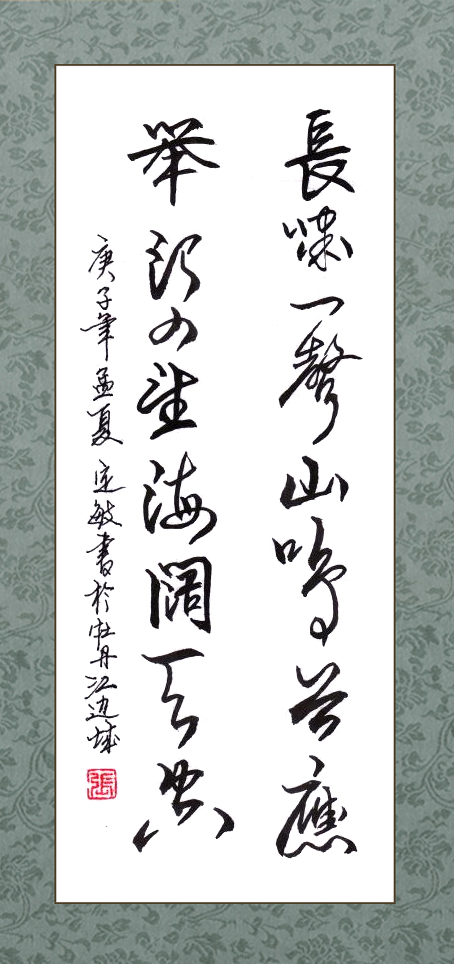 長嘯一聲山鳴谷應
举頭四望海闊天空
庚子年孟夏 定敏書於牡丹江边城
張